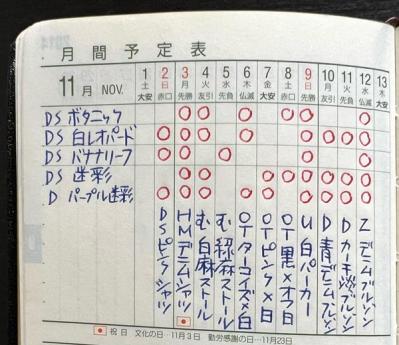 月間予定表
11月 NOV. 1 2 3 4 5 6 7 8 9 10 11 12 13
土 日 月 火 水 木 金 土 日 月 火 水 木
大安 赤口 先勝 友引 先負 仏滅 大安 赤口 先勝 友引 先負 仏滅 大安
DS ボタニック
DS 白レオパード
DS バナナリーフ
DS 迷彩
D パープル迷彩
DSピンクシャツ
HMデニムシャツ
む 白麻ストール
む 緑麻ストール
OTターコイズ×白
OTピンク×白
OT黒×
U白パーカー
D 青デニムブルゾン
D カーキ
Z デニムブルゾン
祝日 文化の日…11月3日 勤労感謝の日…11月23日